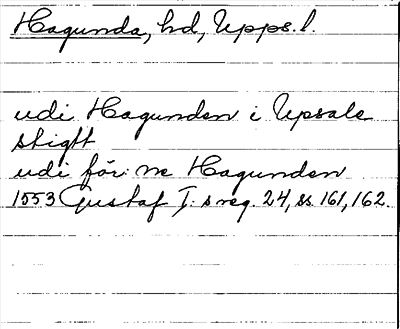 Hagunda, hd, Upps. l.
udi Hagunden i Upsale
stigtt
udi för:ne Hagunden
1553 Gustaf I:s reg. 24, ss. 161, 162.